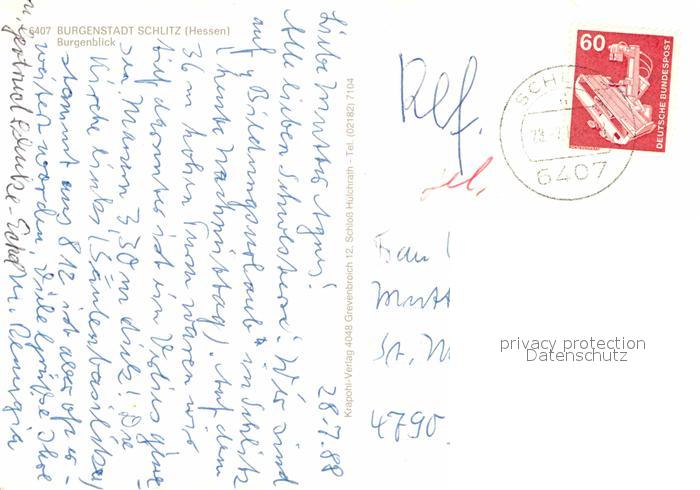 6407 BURGENSTADT SCHLITZ (Hessen)
Burgenblick
28.7.88
Liebe Mutter Agnes!
Alle lieben Schwestern! Wir sind
auf "Bildungsurlaub" in Schlitz
(heute Nachmittag). Auf dem
36 m hohen Turm waren wir
tief darunter ist ein
Mauern 3,30 m dick! Die
Kirche links (Säulenbasilika)
stammt aus 812 ist aber oft er-
weitert worden. Viele Grüße Ihre
M.
u. Gertrud
Krapohl-Verlag 4048 Grevenbroich 12, Schloß Hülchrath - Tel. (02182) 7104
Ref.
60
DEUTSCHE BUNDESPOST
SCHL
6407
Frau
Mutt
St. M
4790
privacy protection
Datenschutz